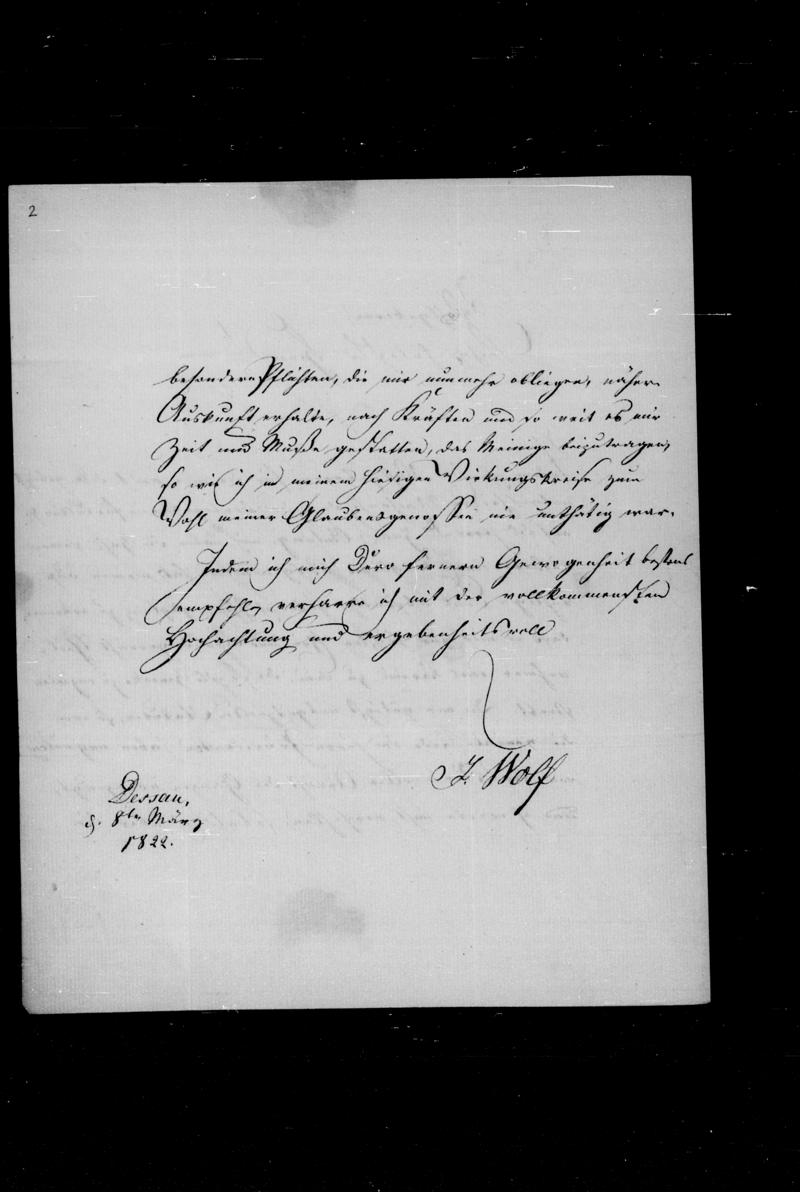 2
besondern Pflichten, die mir nunmehr obliegen, nähere
Auskunft erhalte, nach Kräften und so weit es mir
Zeit und Muße gestatten, das Meinige beizutragen,
so wie ich in meinem hiesigen Wirkungskreise zum
Wohl meiner Glaubensgenossen nie unthätig war.
Indem ich mich Dero fernern Gewogenheit bestens
empfehle, verharre ich mit der vollkommensten
Hochachtung und ergebenheitsvoll
J. Wolf
Dessau,
d. 8ten März
1822.